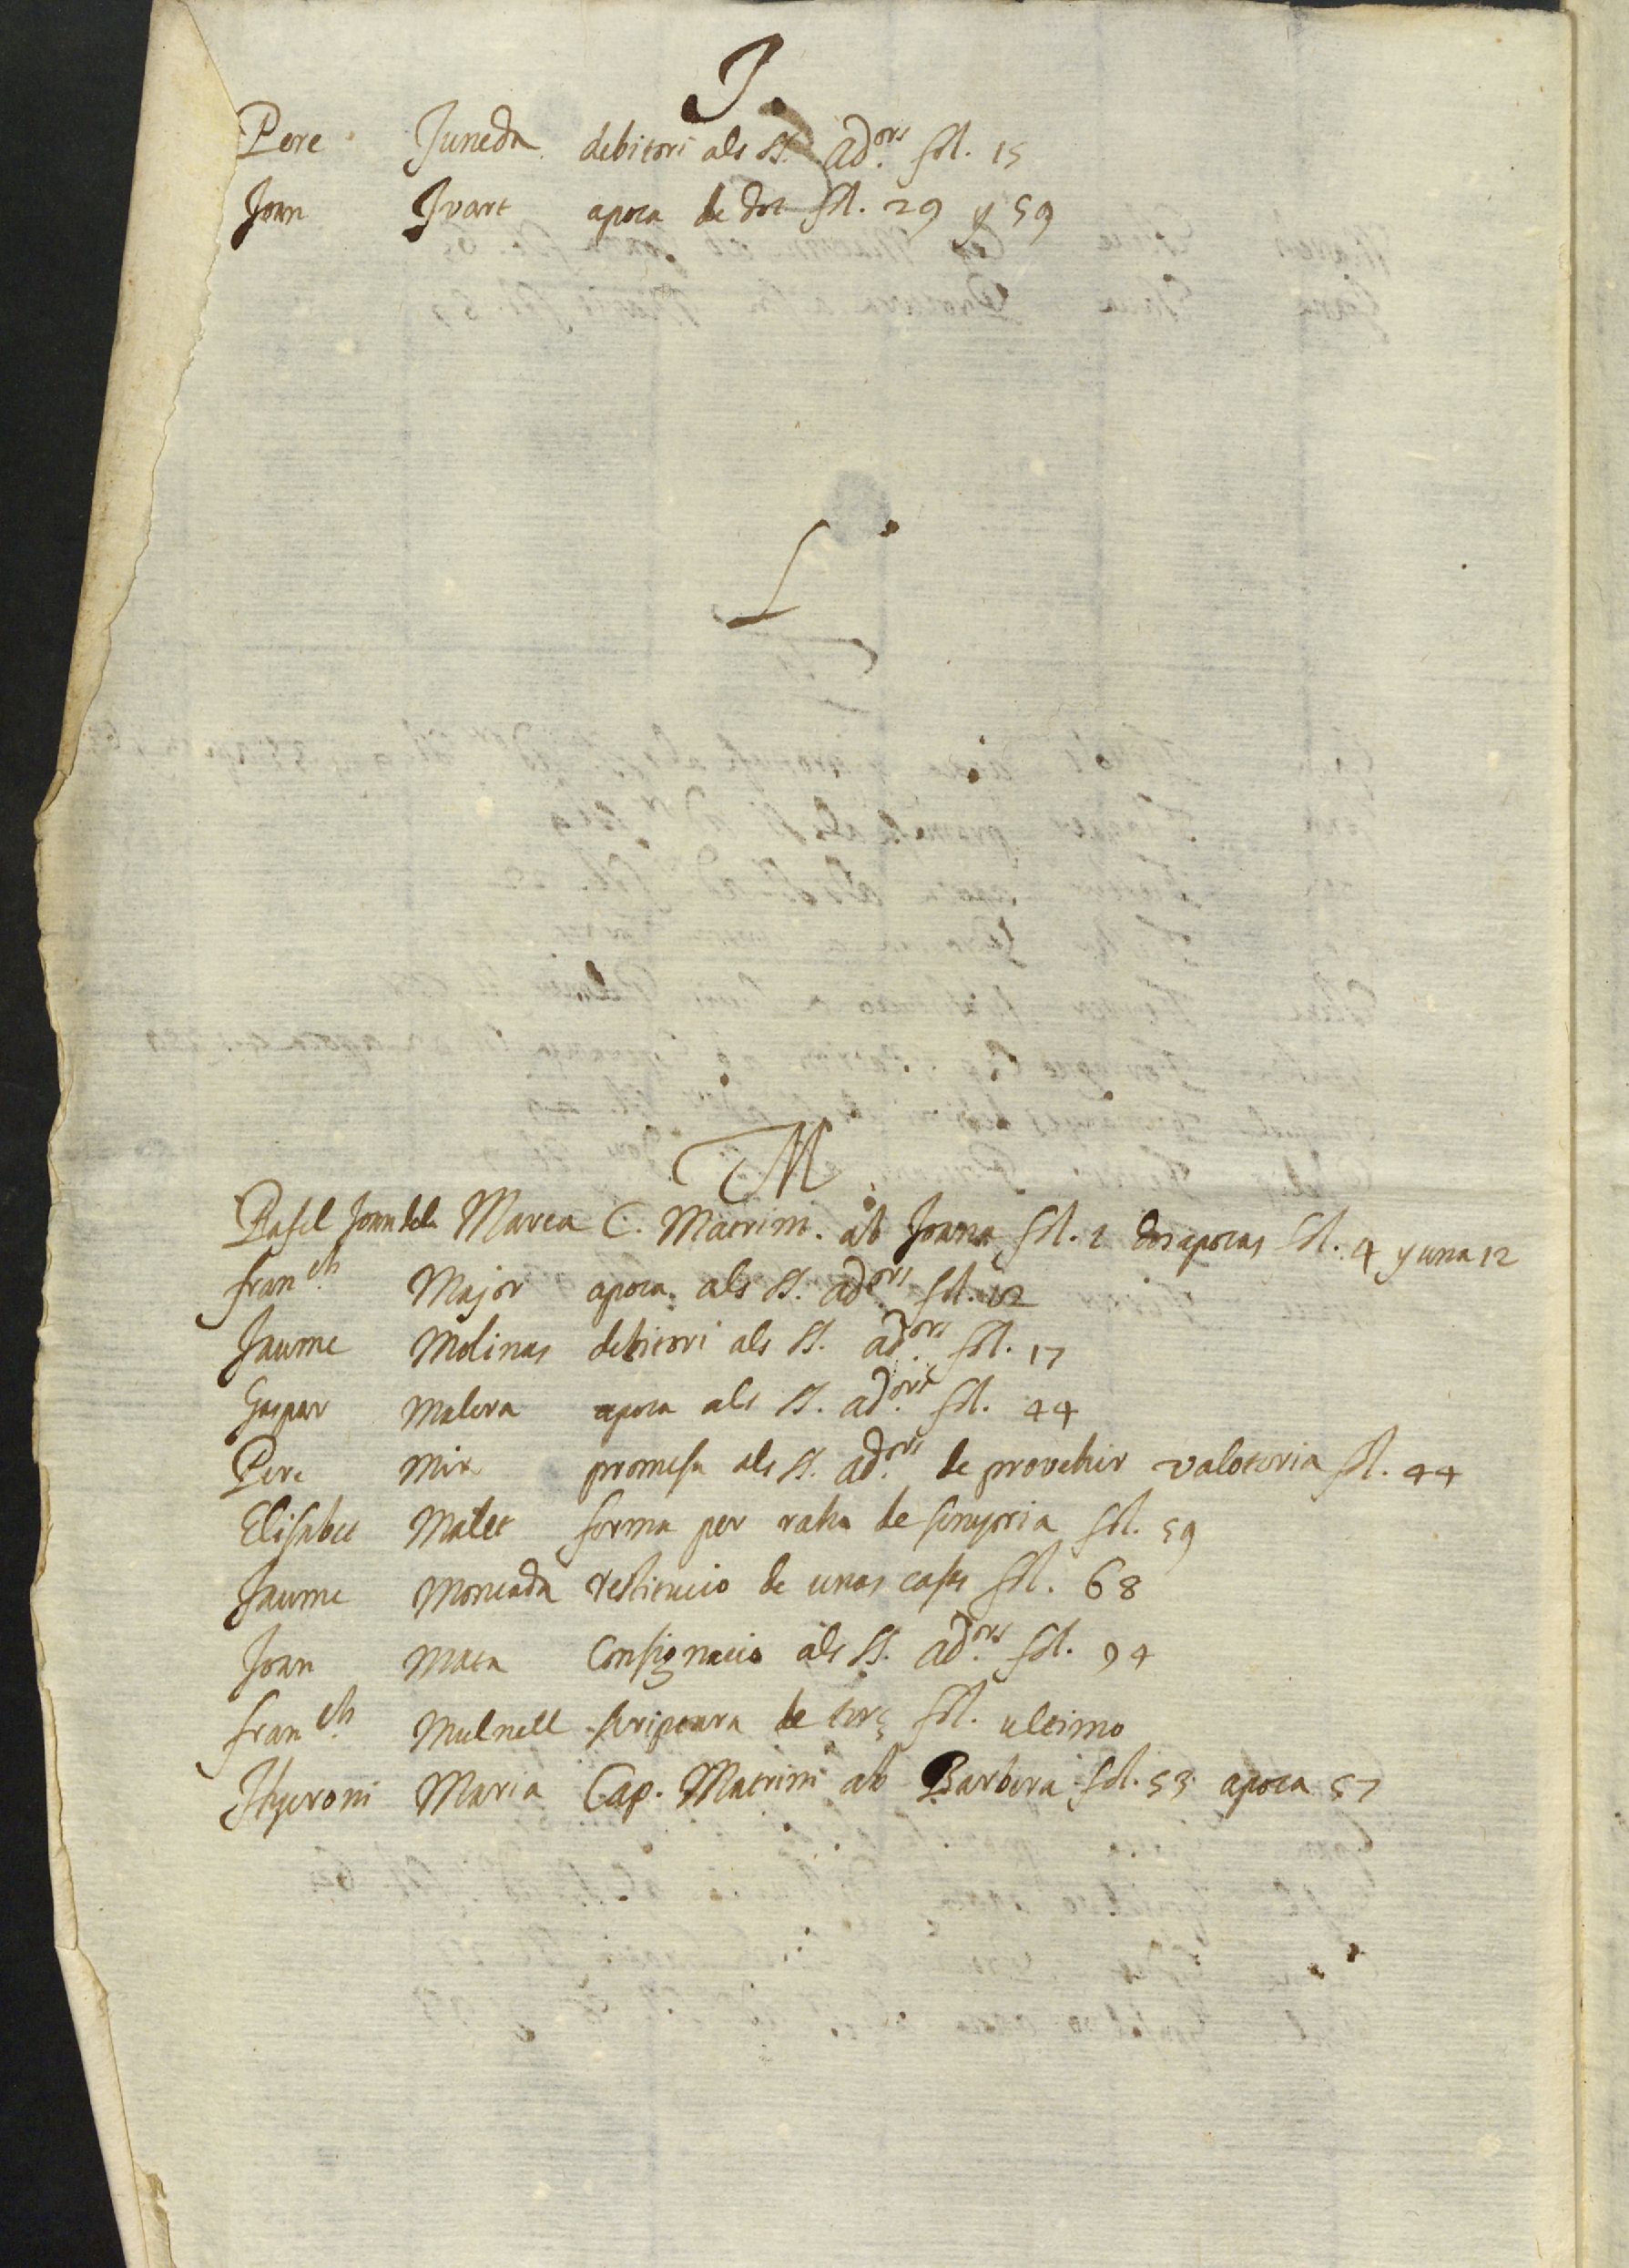 J.
Pere Juneda debitori als SS. ad.ors fol. 15
Joan Jvart apoca de dot fol. 29 y 59
L
M
Rafel Joan dela Marca C. Matrim. ab Joana fol. 1 dos apocas fol. 4 y una 12
Fran.ch Major apoca als SS. ad.ors fol. 12
Jaume Molinas debitori als SS. ad.ors fol. 17
Gaspar Malera apoca als SS. ad.ors fol. 44
Pere Mir promesa als SS. ad.ors de provehir valotoria fol. 44
Elisabet Malet forma per raho de senyoria fol. 59
Jaume Moncada restitucio de unas casas fol. 68
Joan Mata Consignacio als SS. ad.ors fol. 94
Fran.ch Mulnell scriptura de terç fol. ultimo
Hyeroni Maria Cap. Matrim ab Barbera fol. 53 apoca 57